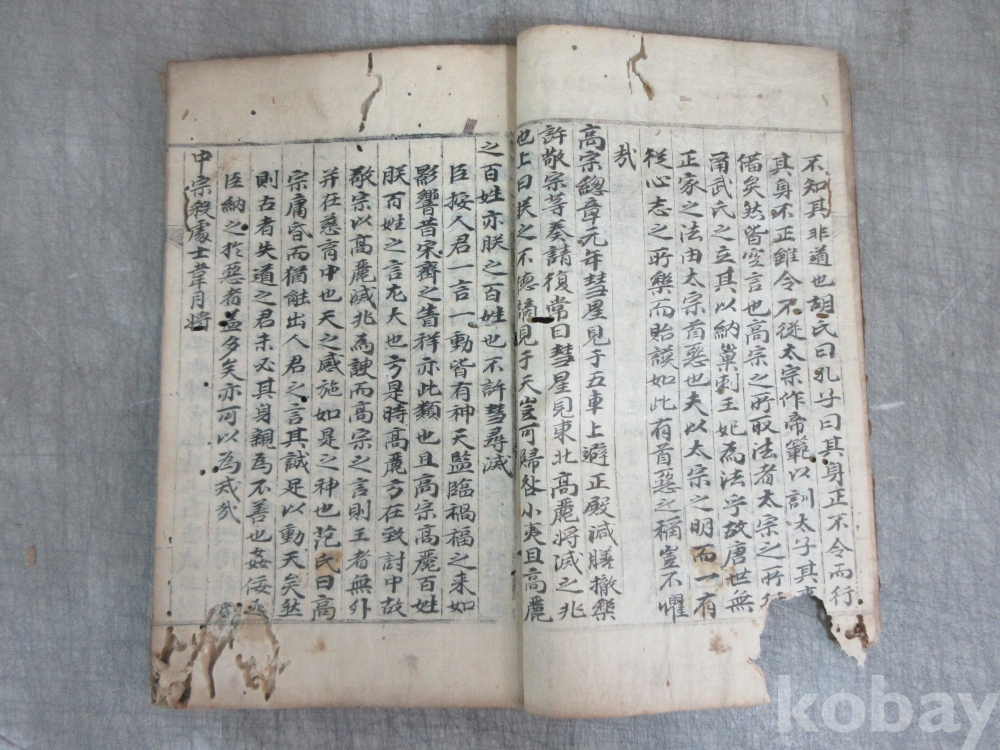 不知其非道也胡氏曰孔子曰其身正不令而行
其身不正雖令不從太宗作帝範以訓太子其
備矣然皆空言也高宗之所取法者太宗之所
甭武氏之立其以納巢刺王妃為法乎故唐世無
正家之法由太宗首惡也夫以太宗之明而一有
從心志之所樂而貽謨如此有首惡之稱豈不懼
㢤
高宗總章元年彗星見于五車上避正殿減膳撤樂
許敬宗等奏請復常曰彗星見東北高麗將滅之兆
也上曰朕之不德謫見于天豈可歸咎小夷且高麗
之百姓亦朕之百姓也不許彗尋滅
臣按人君一言一動皆有神天監臨禍福之来如
影響昔宋齊之眚祥亦此類也且高宗高麗百姓
朕百姓之言尤大也方是時高麗方在致討中故
敬宗以高麗滅兆為諛而高宗之言則王者無外
并在慈育中也天之感施如是之神也范氏曰高
宗庸昏而猶能出人君之言其誠足以動天矣然
則古者失道之君未必其身親為不善也姦佞
臣納之於惡者益多矣亦可以為戒㢤
中宗殺處士韋月將
kobay